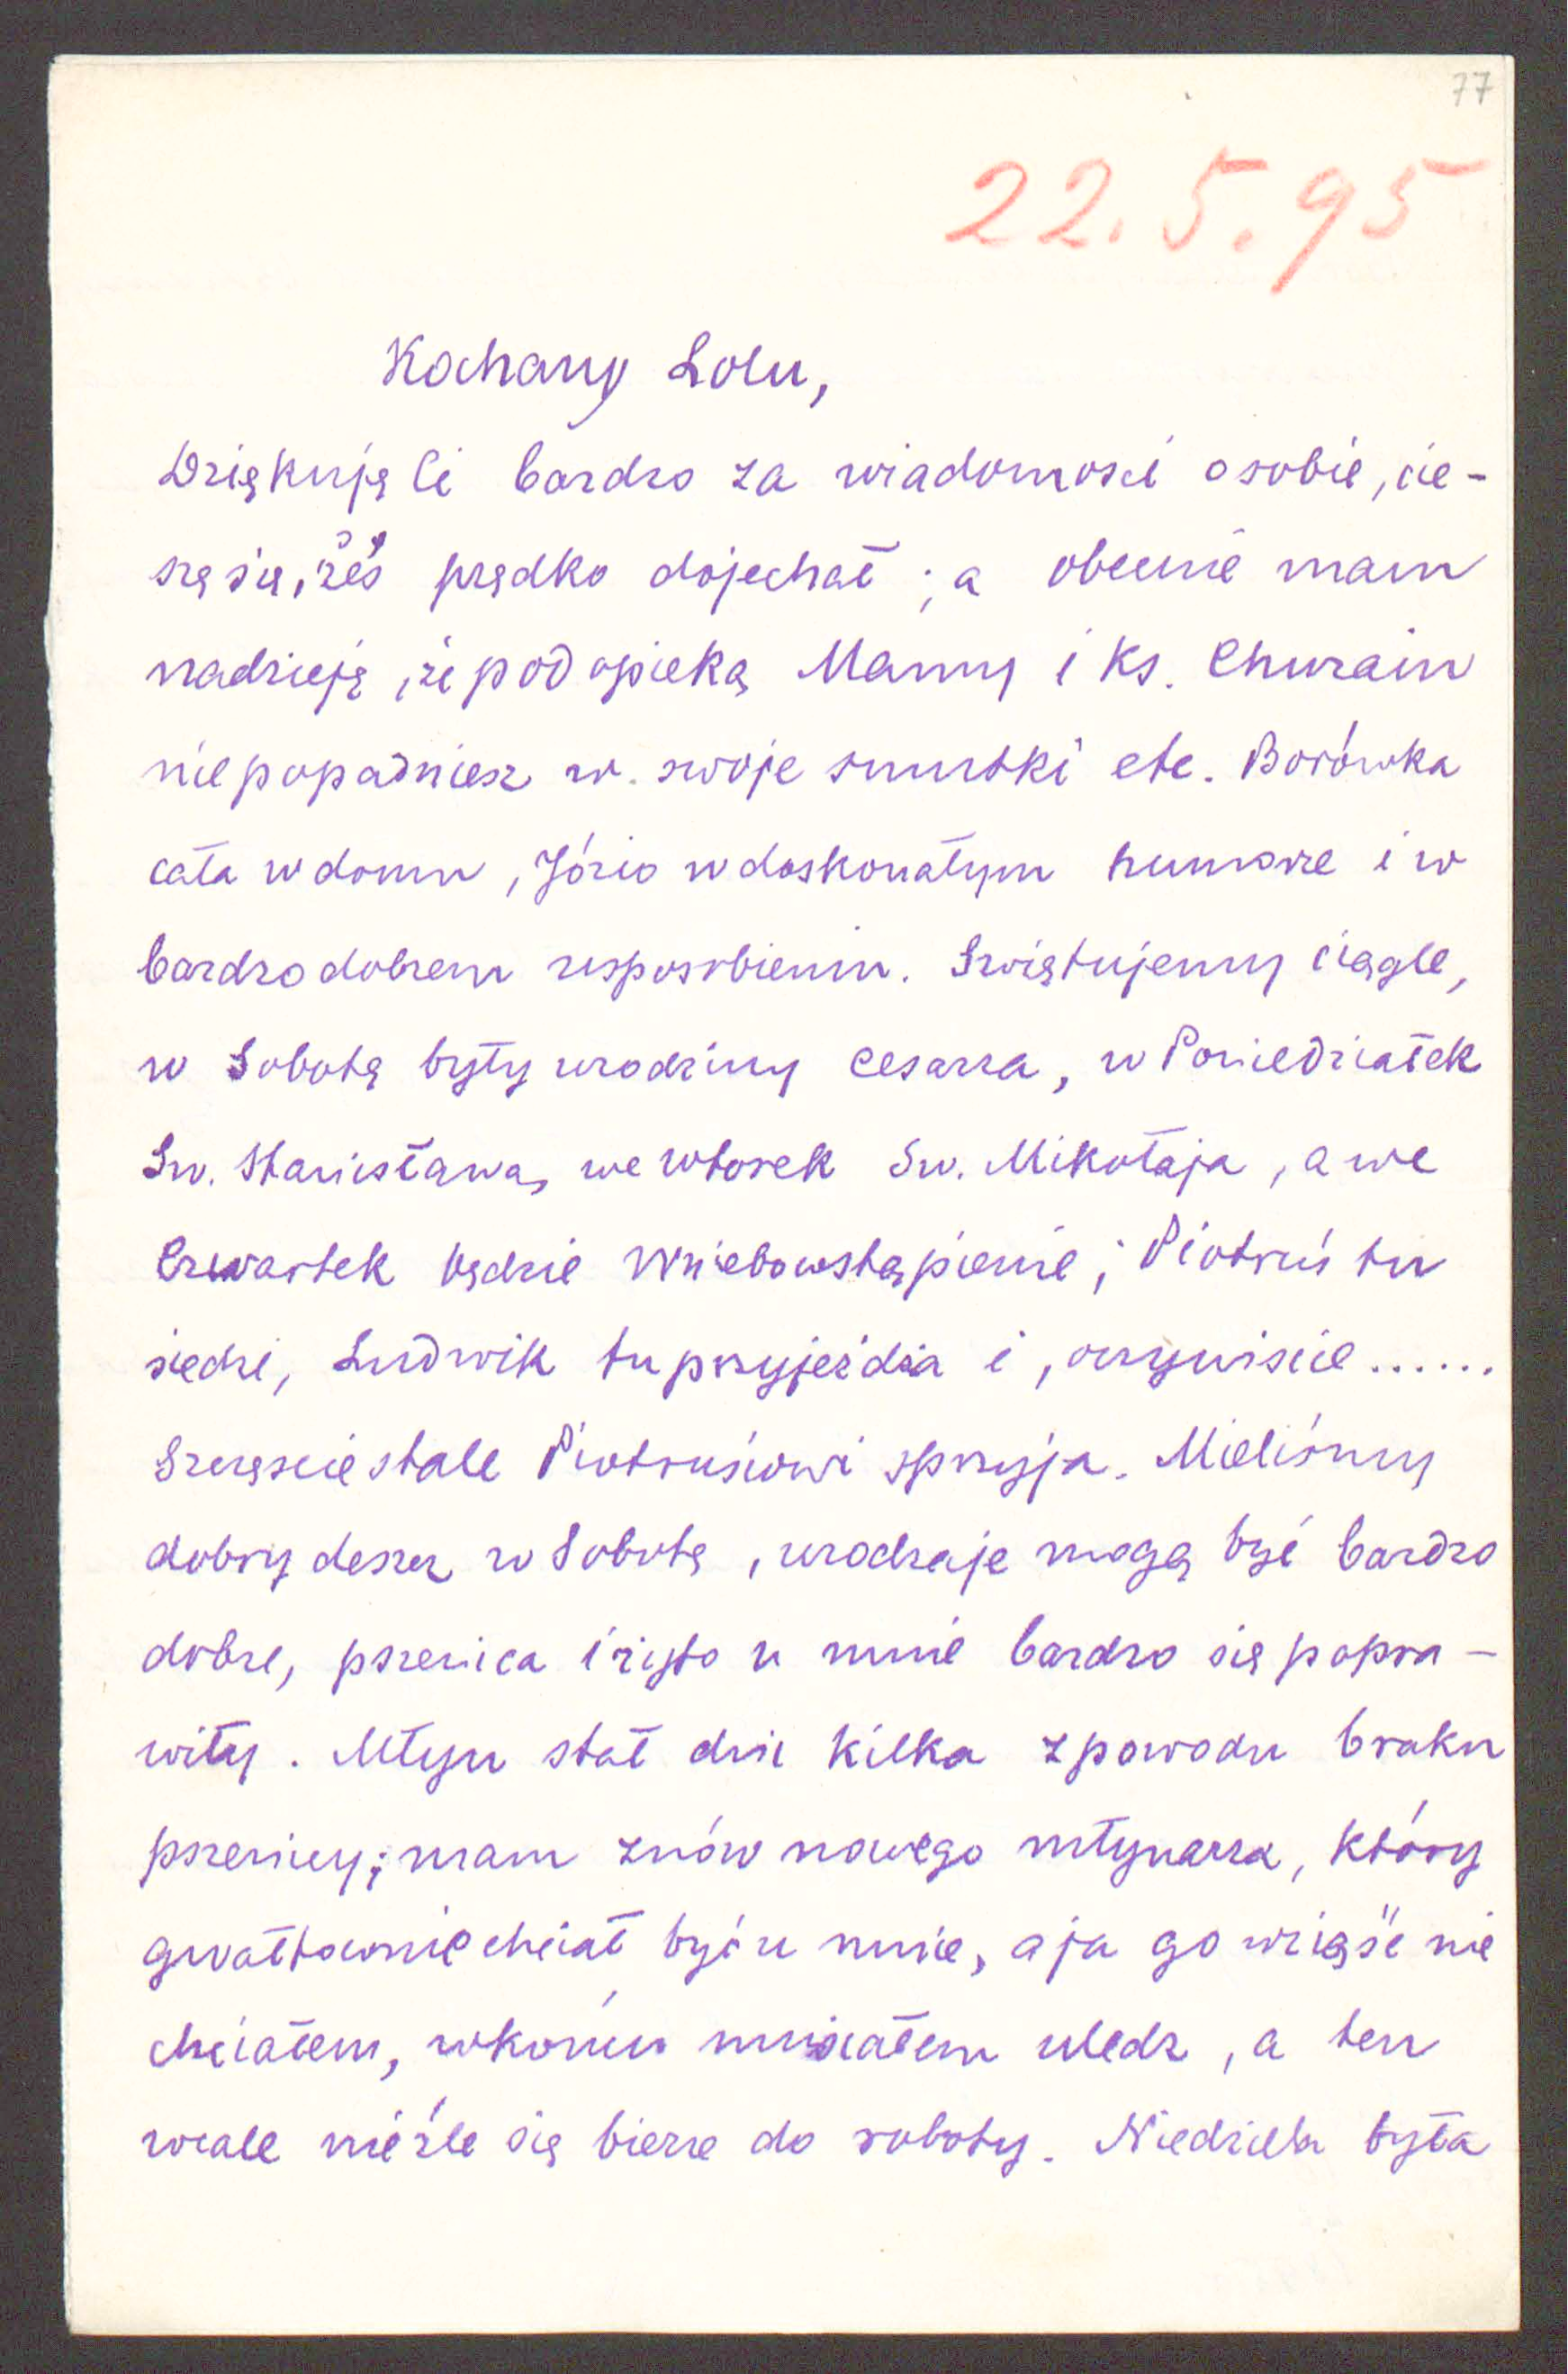 77
22.5.95
Kochany Lolu,
Dziękuję Ci bardzo za wiadomość o sobie, cie-
szę się, żeś prędko dojechał; a obecnie mam
nadzieję, że pod opieką Mamy i Ks. Churain
nie popadniesz w swoje smutki etc. Borówka
cała w domu, Józio w doskonałym humorze i w
bardzo dobrem usposobieniu. Swiętujemy ciągle,
w Sobotę były urodziny cesarza, w Poniedziałek
Sw. Stanisława, we wtorek Sw. Mikołaja, a we
Czwartek będzie Wniebowstąpienie; Piotruś tu
siedzi, Ludwik tu przyjeżdża i, oczywiscie......
Szczęscie stale Piotrusiowi sprzyja. Mieliśmy
dobry deszcz w Sobotę, urodzaje mogą być bardzo
dobre, pszenica i żyto u mnie bardzo się popra-
wiły. Młyn stał dni kilka z powodu braku
pszenicy; mam znów nowego młynarza, który
gwałtownie chciał być u mnie, a ja go wziąść nie
chciałem, w końcu musiałem uledz, a ten
wcale nieźle się bierze do roboty. Niedziela była